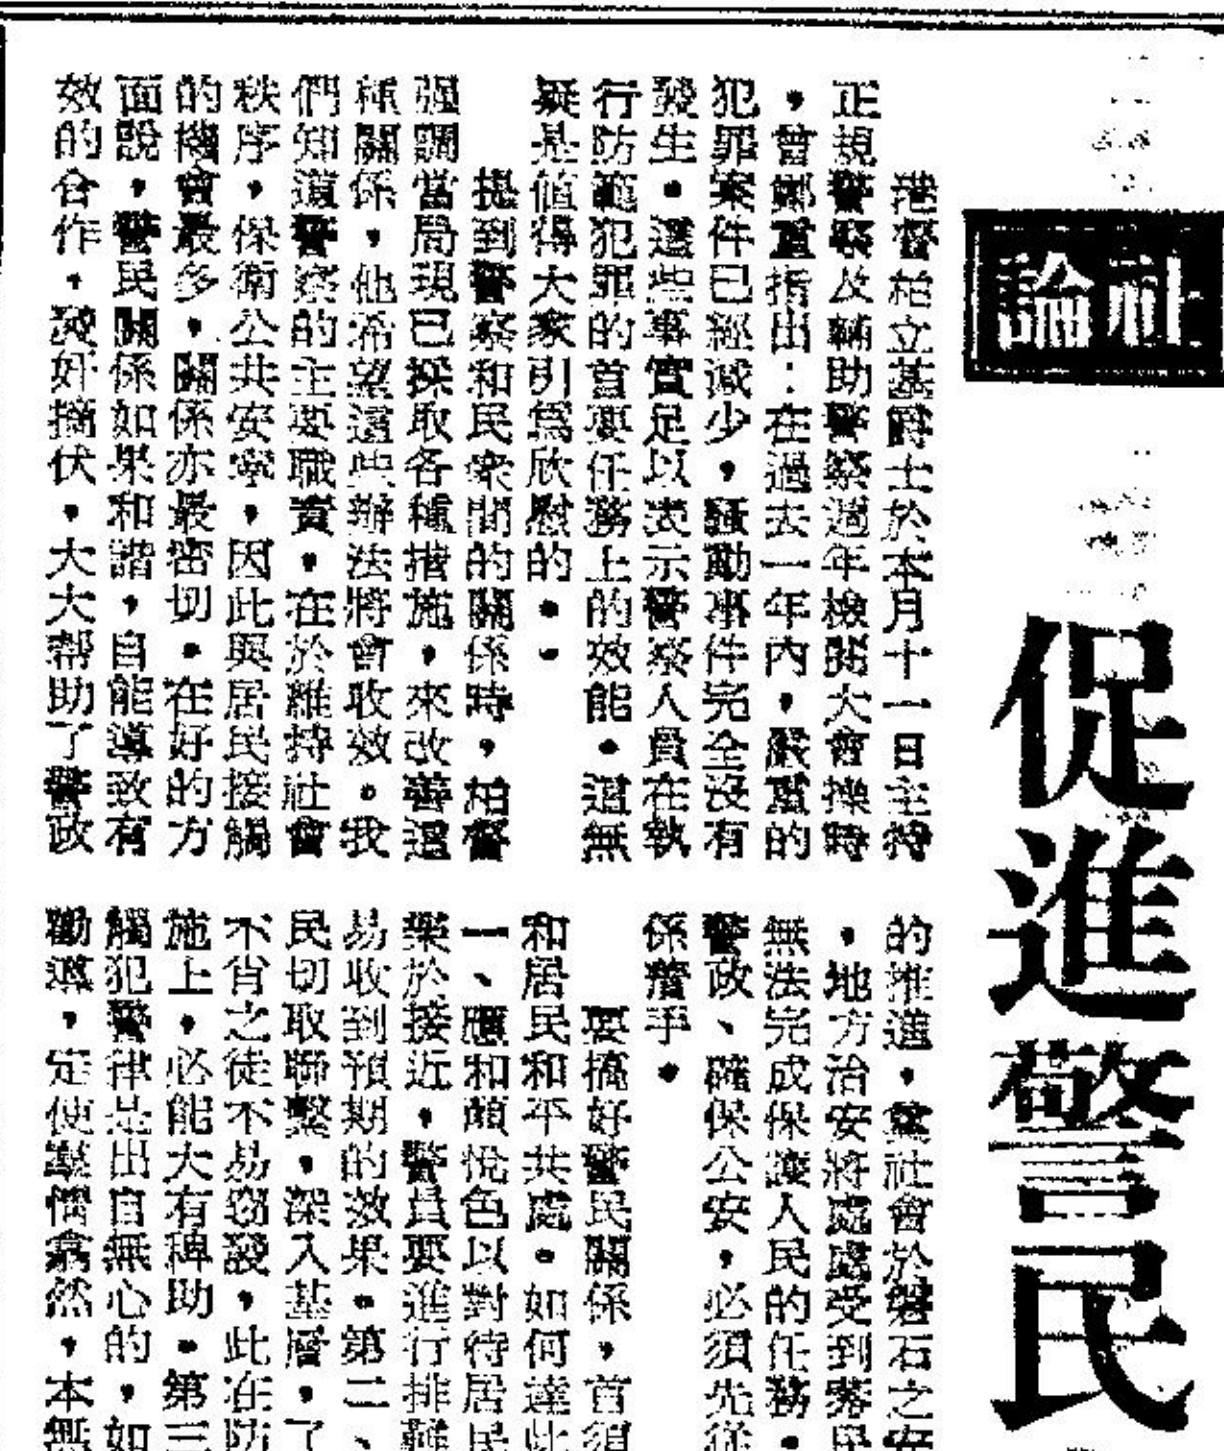 社論
促進警民
港督柏立基爵士於本月十一日主持
正規警察及輔助警察週年檢閱大會操時
，曾鄭重指出：在過去一年內，嚴重的
犯罪案件已經減少，騷動事件完全沒有
發生。這些事實足以表示警察人員在執
行防範犯罪的首要任務上的效能。這無
疑是值得大家引爲欣慰的。
提到警察和民衆間的關係時，柏督
强調當局現已採取各種措施，來改善這
種關係，他希望這些辦法將會收效。我
們知道警察的主要職責，在於維持社會
秩序，保衛公共安寧，因此與居民接觸
的機會最多，關係亦最密切。在好的方
面說，警民關係如果和諧，自能導致有
效的合作。發奸摘伏，大大帮助了警政
的推進，奠社會於磐石之安
，地方治安將處處受到
無法完成保護人民的任務。
警政、確保公安，必須先從
係着手。
要搞好警民關係，首須
和居民和平共處。如何達此
一、應和顏悅色以對待居民
樂於接近，警員要進行排難
易收到預期的效果。第二、
民切取聯繫，深入基層，了
不肖之徒不易竊發，此在防
施上，必能大有裨助。第三
觸犯警律是出自無心的，如
勸導，定使羣情翕然，本無